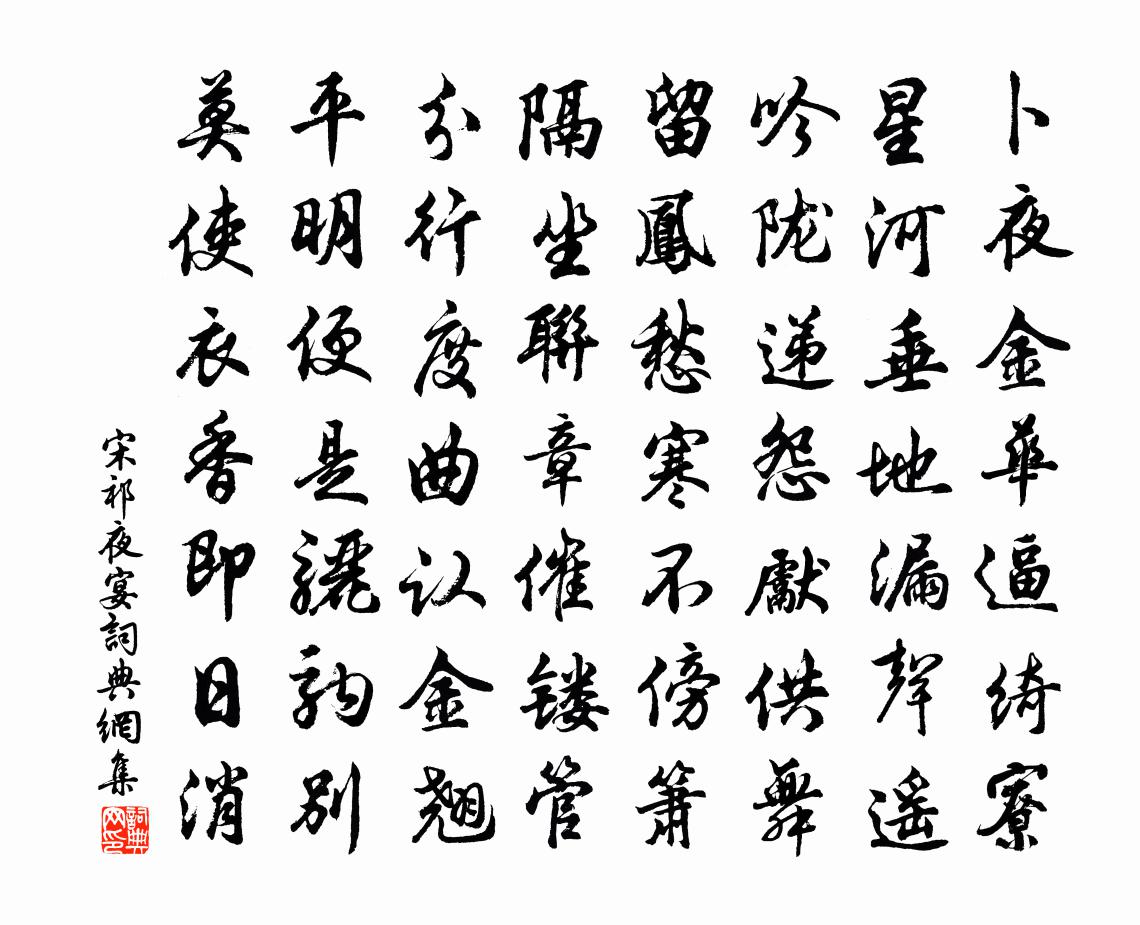 卜夜金華逼綺寮
星河垂地漏聲遥
吟陇递怨獻供舞
留鳳愁寒不傍簫
隔坐聯章催镂管
分行度曲认金翘
平明便是驪駒别
莫使衣香即日消
宋祁夜宴詞典網集
詞典网印